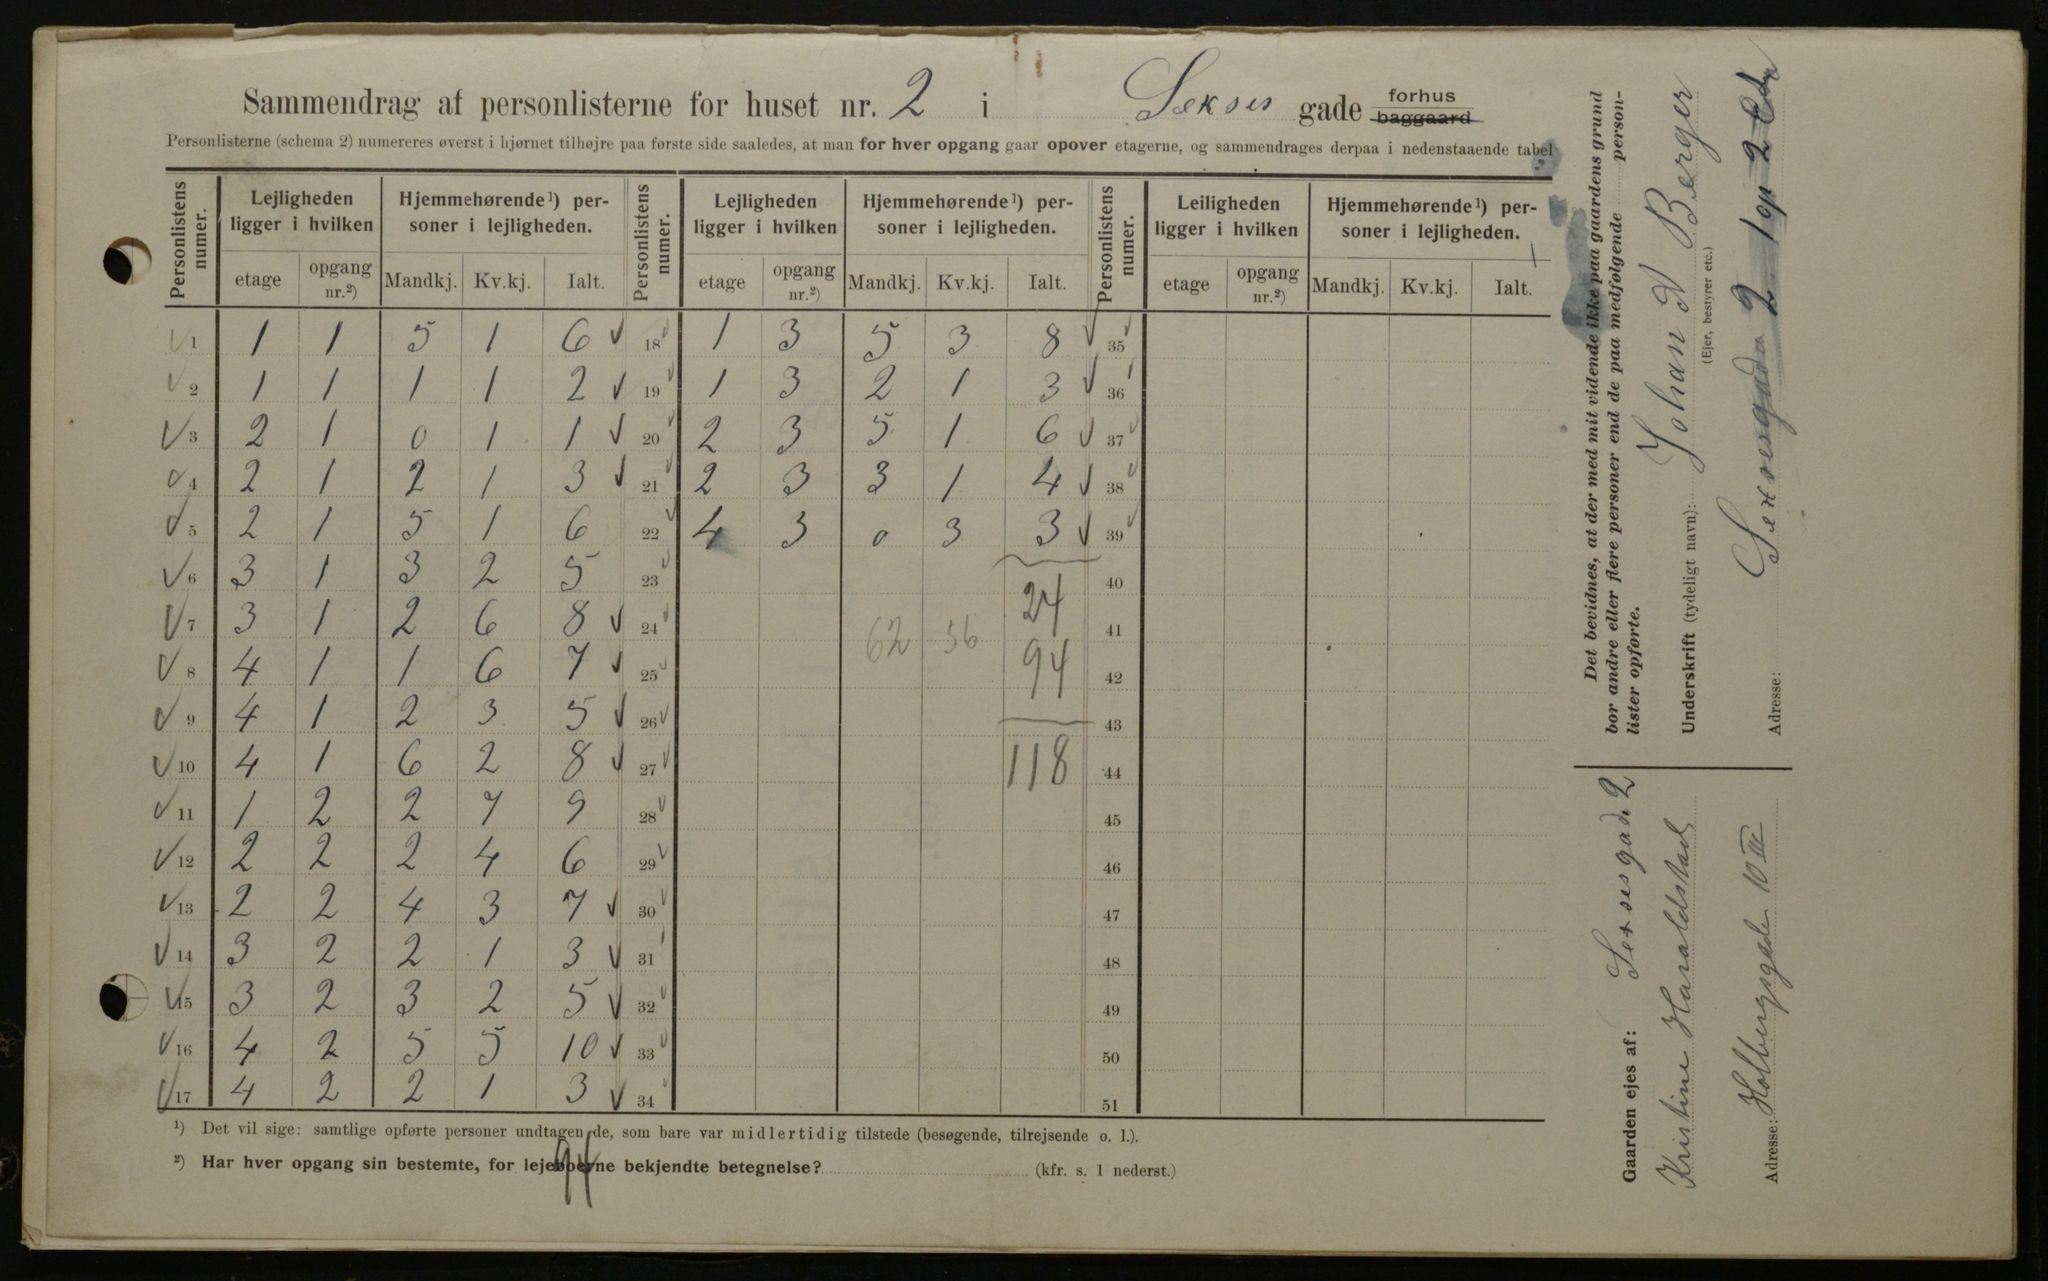 Sammendrag af personlisterne for huset nr. 2 i Sekses gade forhus baggaard
Personlisterne (schema 2) numereres øverst i hjørnet tilhøjre paa første side saaledes, at man for hver opgang gaar opover etagerne, og sammendrages derpaa i nedenstaaende tabel
Personlistens numer. Lejligheden ligger i hvilken Hjemmehørende¹) personer i lejligheden. Personlistens numer. Lejligheden ligger i hvilken Hjemmehørende¹) personer i lejligheden. Personlistens numer. Leiligheden ligger i hvilken Hjemmehørende¹) personer i lejligheden.
etage opgang nr.²) Mandkj. Kv.kj. Ialt. etage opgang nr.²) Mandkj. Kv.kj. Ialt. etage opgang nr.²) Mandkj. Kv.kj. Ialt.
1 1 1 5 1 6 18 1 3 5 3 8 35
2 1 1 1 1 2 19 1 3 2 1 3 36
3 2 1 0 1 1 20 2 3 5 1 6 37
4 2 1 2 1 3 21 2 3 3 1 4 38
5 2 1 5 1 6 22 4 3 0 3 3 39
6 3 1 3 2 5 23 24 40
7 3 1 2 6 8 24 62 56 41
8 4 1 1 6 7 25 94 42
9 4 1 2 3 5 26 43
10 4 1 6 2 8 27 118 44
11 1 2 2 7 9 28 45
12 2 2 2 4 6 29 46
13 2 2 4 3 7 30 47
14 3 2 2 1 3 31 48
15 3 2 3 2 5 32 49
16 4 2 5 5 10 33 50
17 4 2 2 1 3 34 51
94
¹) Det vil sige: samtlige opførte personer undtagen de, som bare var midlertidig tilstede (besøgende, tilrejsende o. l.).
²) Har hver opgang sin bestemte, for lejeboerne bekjendte betegnelse? (kfr. s. 1 nederst.)
Det bevidnes, at der med mit vidende ikke paa gaardens grund
bor andre eller flere personer end de paa medfølgende person-
lister opførte.
Underskrift (tydeligt navn): Johan A Berger
(Ejer, bestyrer etc.)
Adresse: Sexesgada 2 1 op 2 Etn
Gaarden ejes af: Sexsesgada 2
Kristine Haraldstad
Adresse: Holbergsgade 10 III